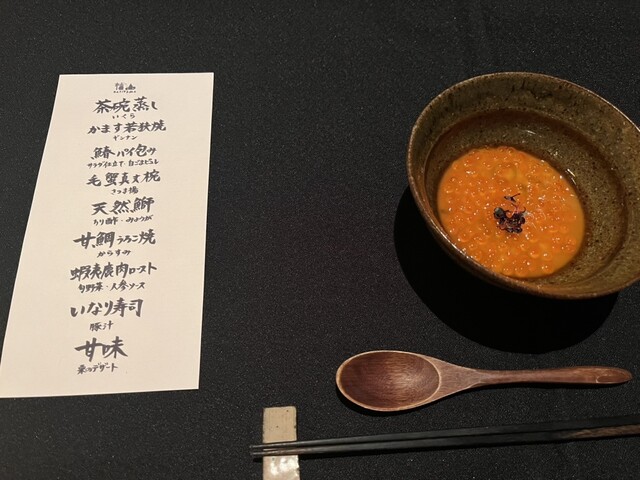 茶碗蒸し
いくら
かます若狭焼
ギンナン
鰆パイ包み
サラダ仕立て・白ごまどらし
毛蟹真丈椀
さつま揚
天然鰤
ちり酢・みょうが
甘鯛うろこ焼
からすみ
蝦夷鹿肉ロースト
旬野菜・人参ソース
いなり寿司
豚汁
甘味
栗のデザート